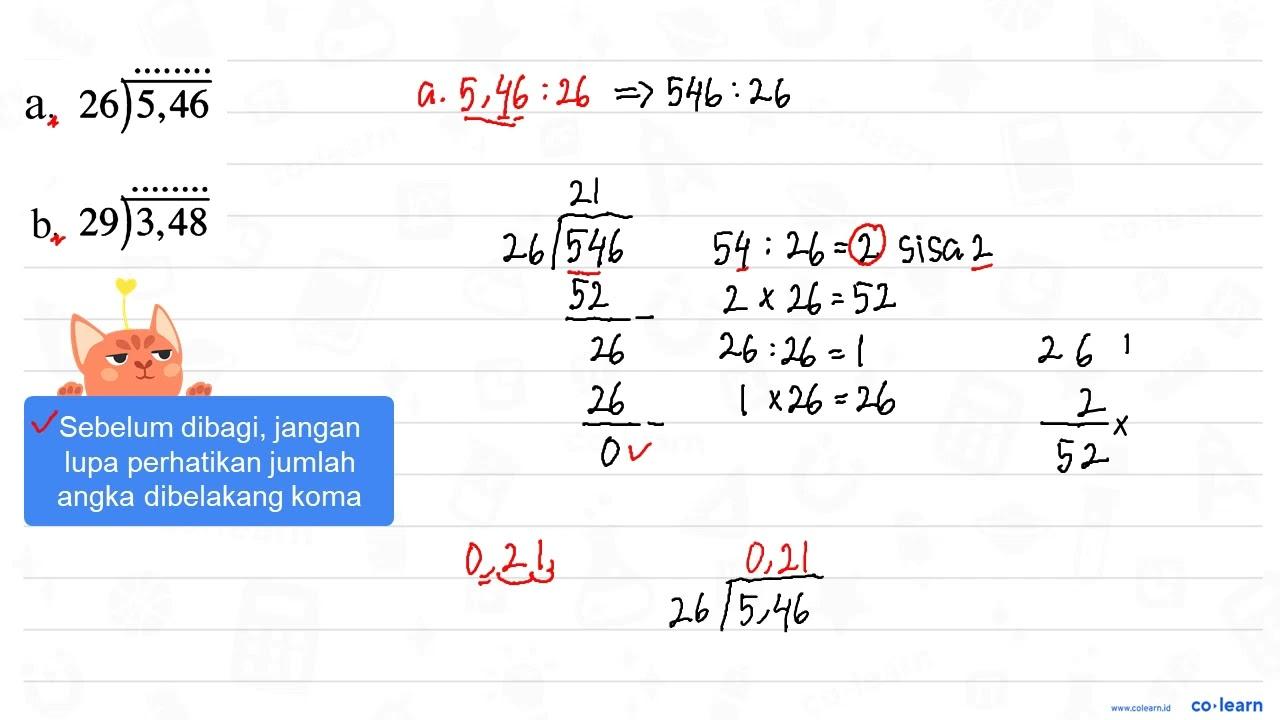 ........
a. 26)5,46
a. 5,46 : 26 => 546 : 26
........
b. 29)3,48
21
26 546 54 : 26 = 2 sisa 2
52 - 2 x 26 = 52
26 26 : 26 = 1 26 1
26 - 1 x 26 = 26 2 x
0 52
Sebelum dibagi, jangan
lupa perhatikan jumlah
angka dibelakang koma
0,21 0,21
26 5,46
www.colearn.id co·learn